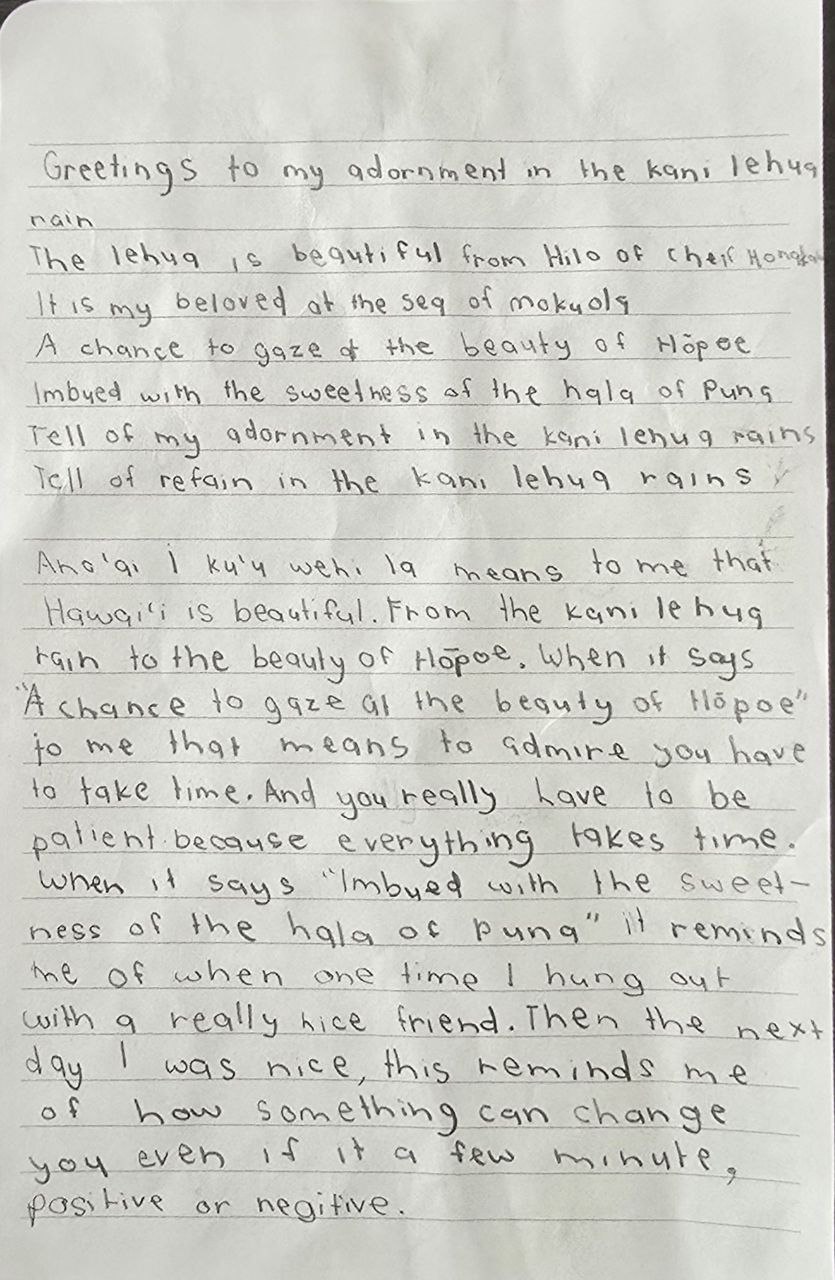 Greetings to my adornment in the kani lehua
rain
The lehua is beautiful from Hilo of cheif
It is my beloved at the sea of mokuola
A chance to gaze at the beauty of Hōpoe
Imbued with the sweetness of the hala of Puna
Tell of my adornment in the kani lehua rains
Tell of refain in the kani lehua rains
Ano'ai i ku'u wehi la means to me that
Hawai'i is beautiful. From the kani lehua
rain to the beauty of Hōpoe. When it says
"A chance to gaze at the beauty of Hōpoe"
to me that means to admire you have
to take time. And you really have to be
patient because everything takes time.
When it says "Imbued with the sweet-
ness of the hala of puna" it reminds
me of when one time I hung out
with a really nice friend. Then the next
day I was nice, this reminds me
of how something can change
you even if it a few minute,
positive or negitive.